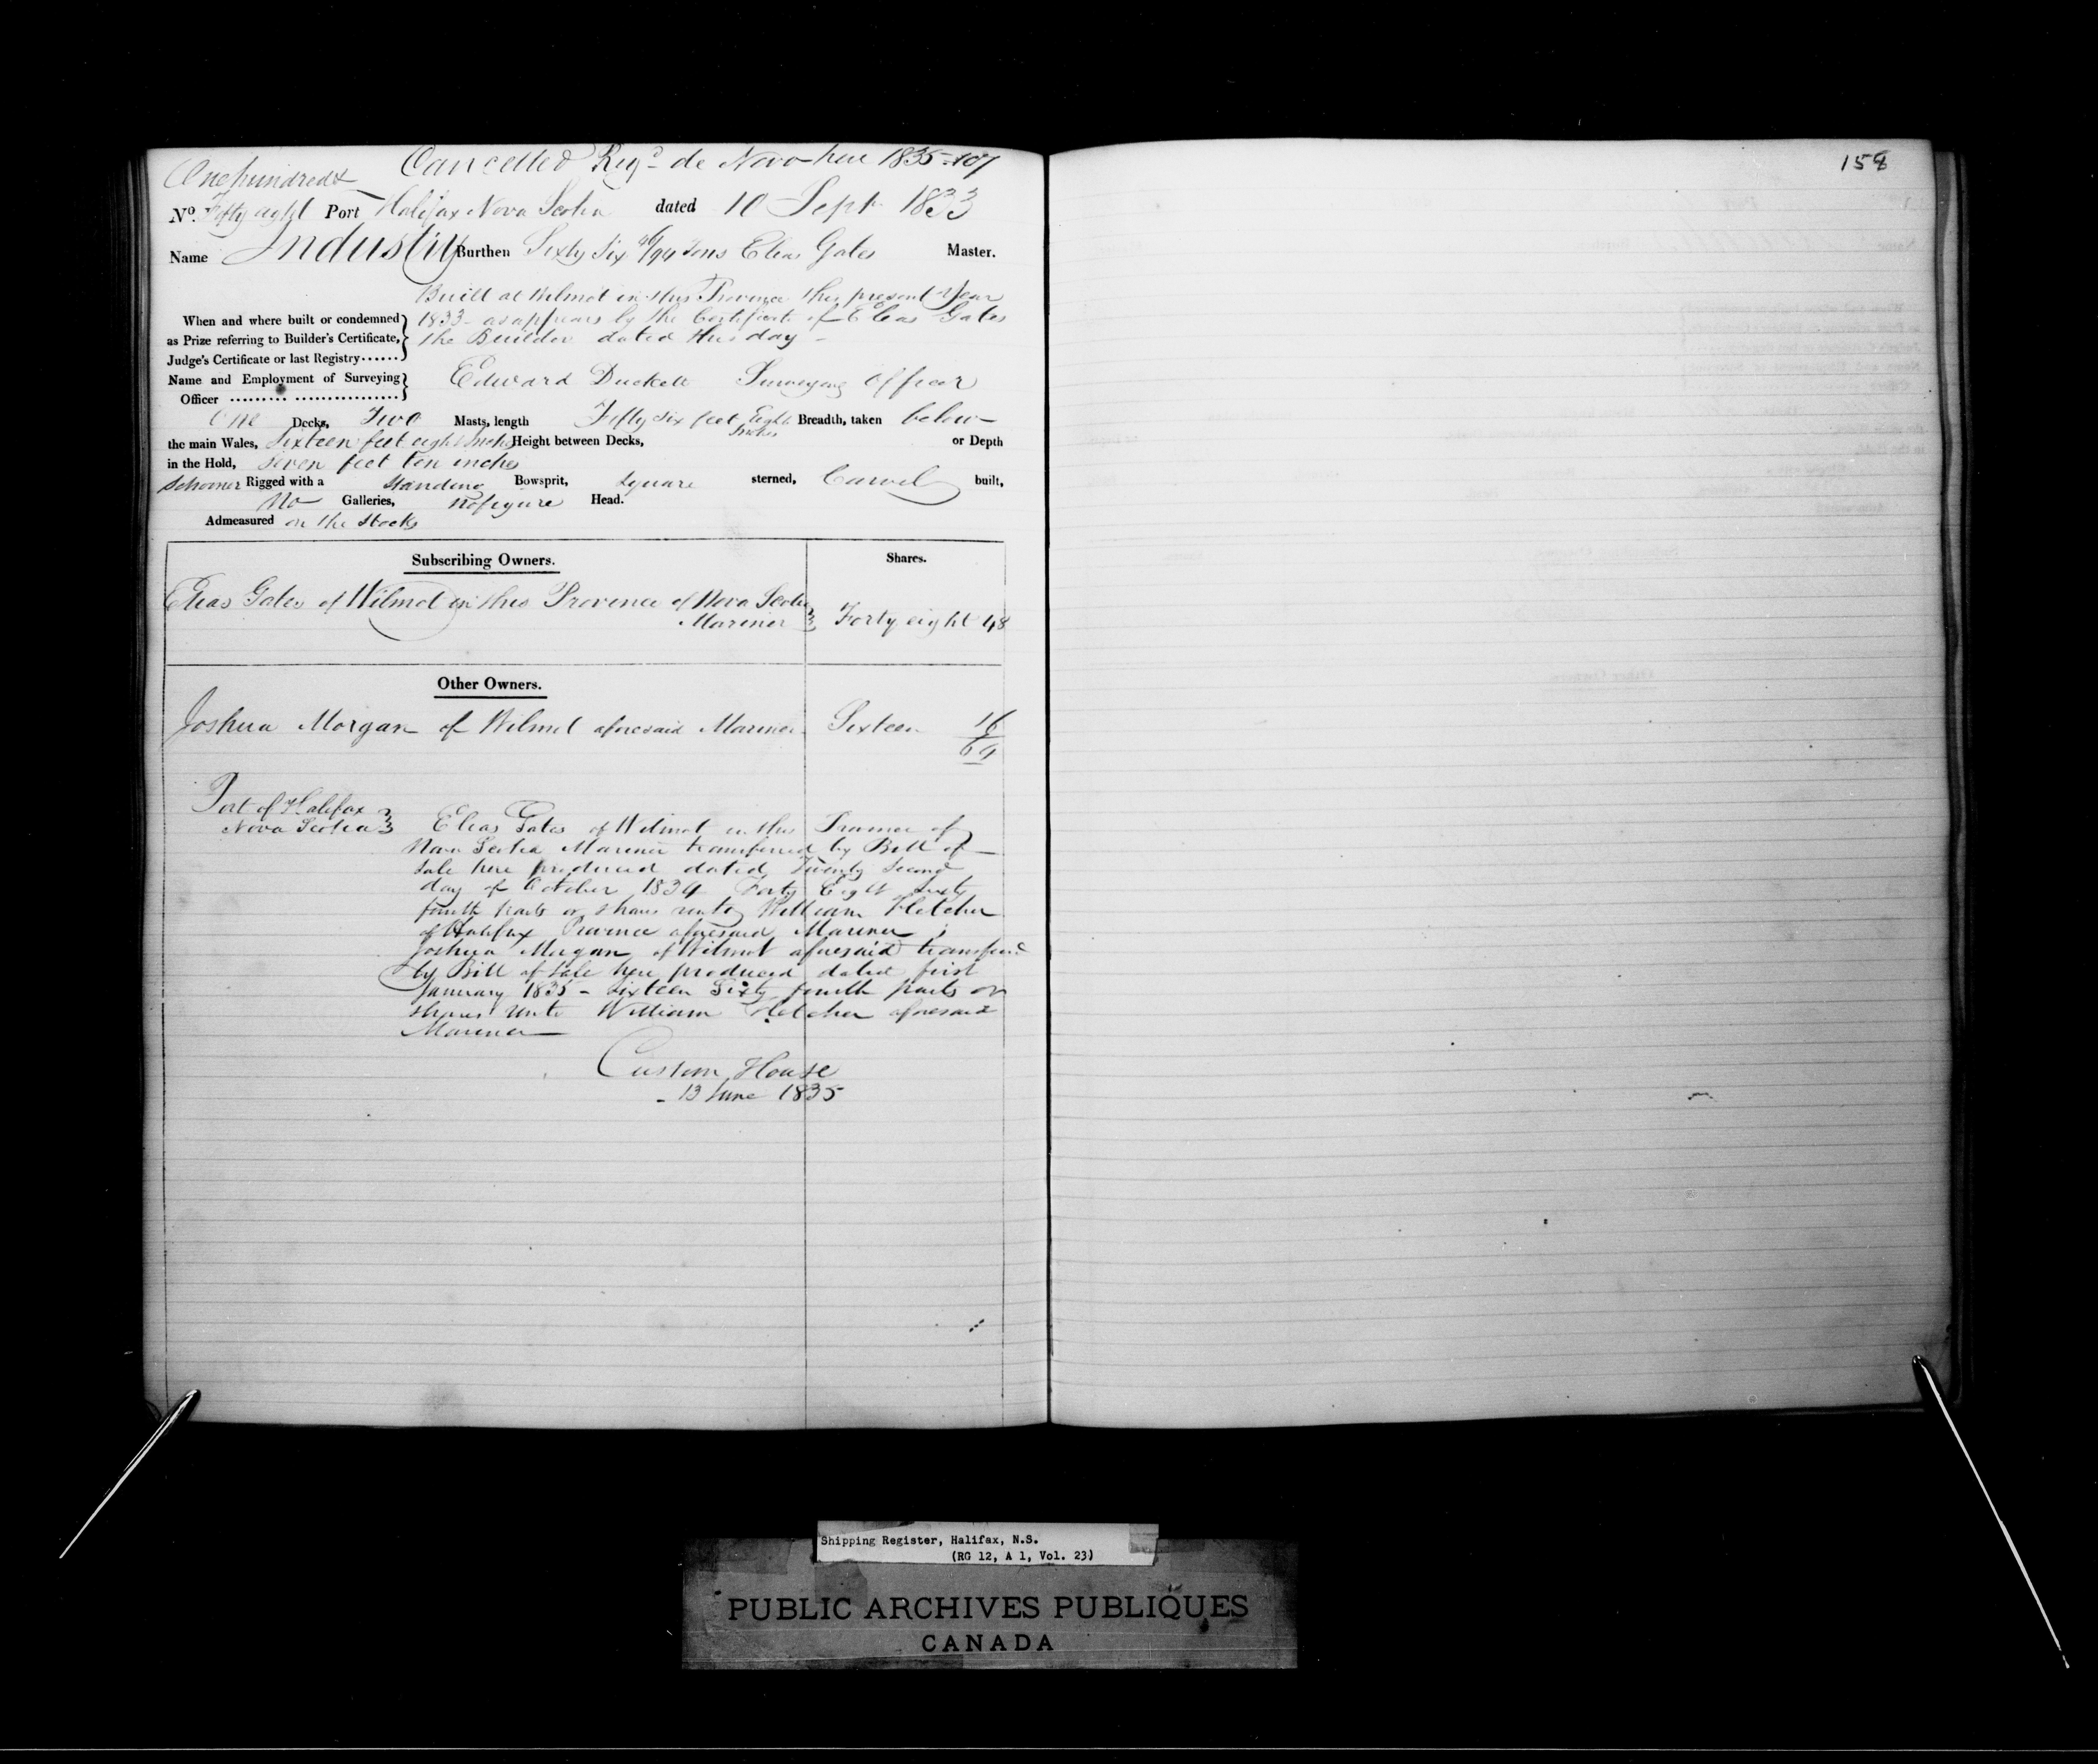 Cancelled Reg.d de Novo here 1835-107
One hundred &
No. Fifty eight Port Halifax Nova Scotia dated 10 Sept 1833
Name Industry Burthen Sixty Six 46/94 Tons Elias Gates Master.
Built at Wilmot in this Province this present Year
When and where built or condemned 1833 - as appears by the Certificate of Elias Gates
as Prize referring to Builder's Certificate, the Builder dated this day -
Judge's Certificate or last Registry......
Name and Employment of Surveying Edward Duckett Surveying Officer
Officer ......... ................
One Decks, Two Masts, length Fifty six feet Eight Inches Breadth, taken below
the main Wales, Sixteen feet eight Inches Height between Decks, or Depth
in the Hold, Seven feet ten inches
Schooner Rigged with a Standing Bowsprit, Square sterned, Carvel built,
No Galleries, No figure Head.
Admeasured on the Stocks
Subscribing Owners. Shares.
Elias Gates of Wilmot in this Province of Nova Scotia
Mariner Forty eight 48
Other Owners.
Joshua Morgan of Wilmot aforesaid Mariner Sixteen 16
64
Port of Halifax
Nova Scotia Elias Gates of Wilmot in the Province of
Nova Scotia Mariner transferred by Bill of
Sale here produced dated Twenty Second
day of October 1834 Forty Eight Sixty
fourth parts or shares unto William Fletcher
of Halifax Province aforesaid Mariner ;
Joshua Morgan of Wilmot aforesaid transferred
by Bill of Sale here produced dated first
January 1835 - Sixteen Sixty fourth parts or
shares unto William Fletcher aforesaid
Mariner
Custom House
- 13 June 1835
158
Shipping Register, Halifax, N.S.
(RG 12, A 1, Vol. 23)
PUBLIC ARCHIVES PUBLIQUES
CANADA